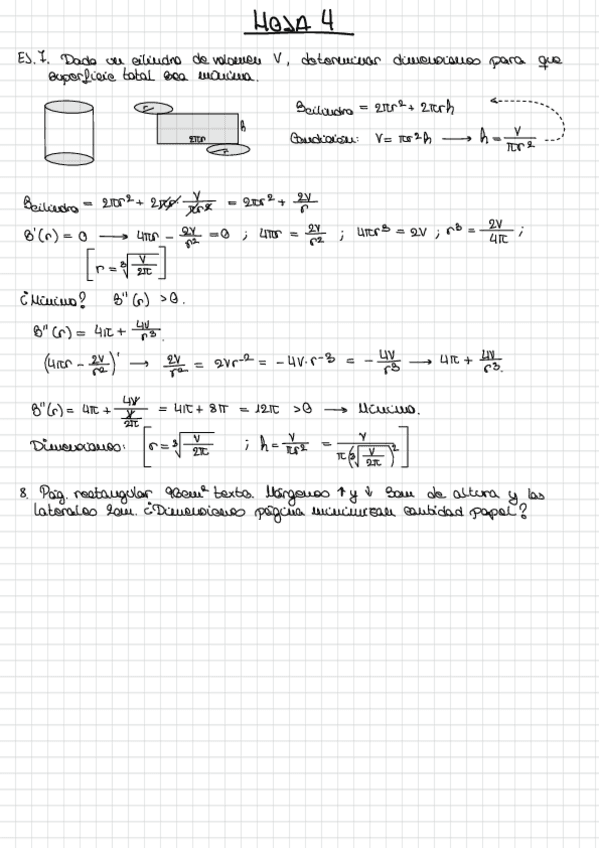 HOJA 4
EJ. 7. Dado un cilindro de volumen V, determinar dimensiones para que
superficie total sea mínima.
r
2πr
h
r
Scilindro = 2πr² + 2πrh
Condición: V = πr²h → h = V/πr²
Scilindro = 2πr² + 2πr · V/πr² = 2πr² + 2V/r
S'(r) = 0 → 4πr - 2V/r² = 0 ; 4πr = 2V/r² ; 4πr³ = 2V ; r³ = 2V/4π ;
[r = ∛(V/2π)]
¿Mínimo? S''(r) > 0.
S''(r) = 4π + 4V/r³.
(4πr - 2V/r²)' → 2V/r² = 2Vr⁻² = -4V·r⁻³ = - 4V/r³ → 4π + 4V/r³.
S''(r) = 4π + 4V/(V/2π) = 4π + 8π = 12π > 0 → Mínimo.
Dimensiones: [r = ∛(V/2π) ; h = V/πr² = V/π(∛(V/2π))²]
8. Pág. rectangular 93cm² texto. Márgenes ↑ y ↓ 3cm de altura y las
laterales 2cm. ¿Dimensiones página minimizan cantidad papel?